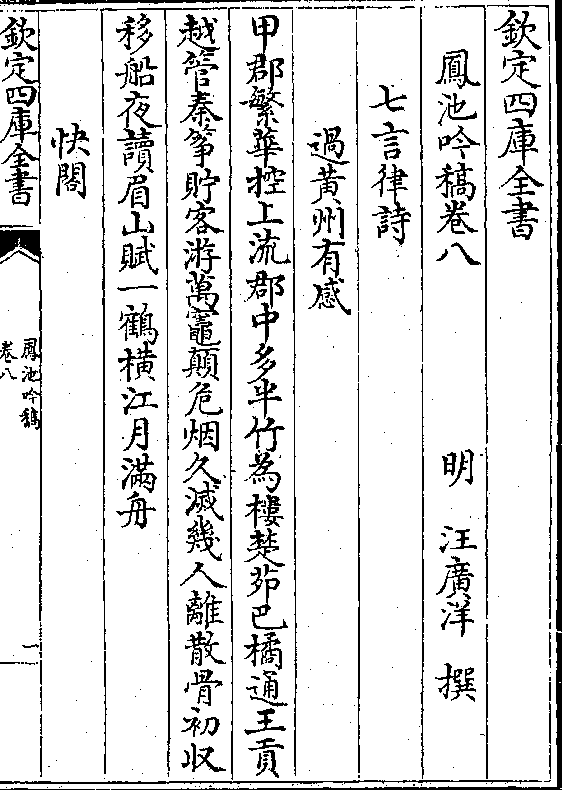 欽定四庫全書
鳳池吟稿卷八
明 汪廣洋 撰
七言律詩
過黃州有感
甲郡繁華控上流郡中多半竹為樓楚茆巴橘通王貢
越管秦箏貯客游萬竈顛危烟久滅幾人離散骨初收
移船夜讀眉山賦一鶴橫江月滿舟
快閣
欽定四庫全書
鳳池吟稿
卷八
一